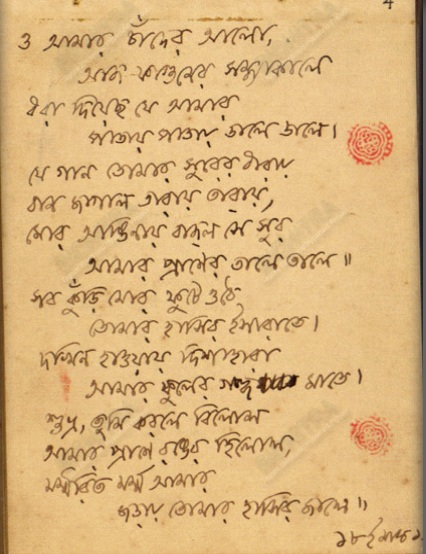 4
ও আমার চাঁদের আলো,
আজ ফাগুনের সন্ধ্যাকালে
ধরা দিয়েছ যে আমার
পাতায় পাতায় ডালে ডালে।
যে গান তোমার সুরের ধারায়
বান জাগাল তারায় তারায়,
মোর আঙিনায় বাজল সে সুর
আমার প্রাণের তালে তালে॥
সব কুঁড়ি মোর ফুটে ওঠে
তোমার হাসির ইসারাতে।
দখিন হাওয়ায় দিশাহারা
আমার ফুলের গন্ধ মাতে।
শুভ্র, তুমি করলে বিলোল
আমার প্রাণে রঙের হিলোল,
মর্ম্মরিত মর্ম্ম আমার
জড়ায় তোমার হাসির জালে॥